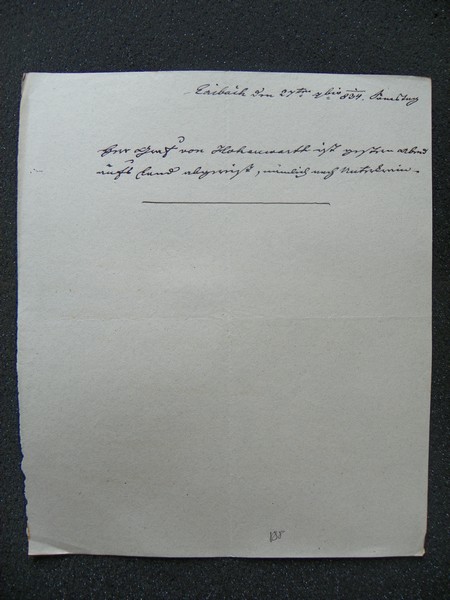 Laibach den 27ten 7bis 834. Samstag
Herr Graf von Hohenwarth ist gestern abend
aufs Land abgereist, nämlich nach Unterkrain.
138